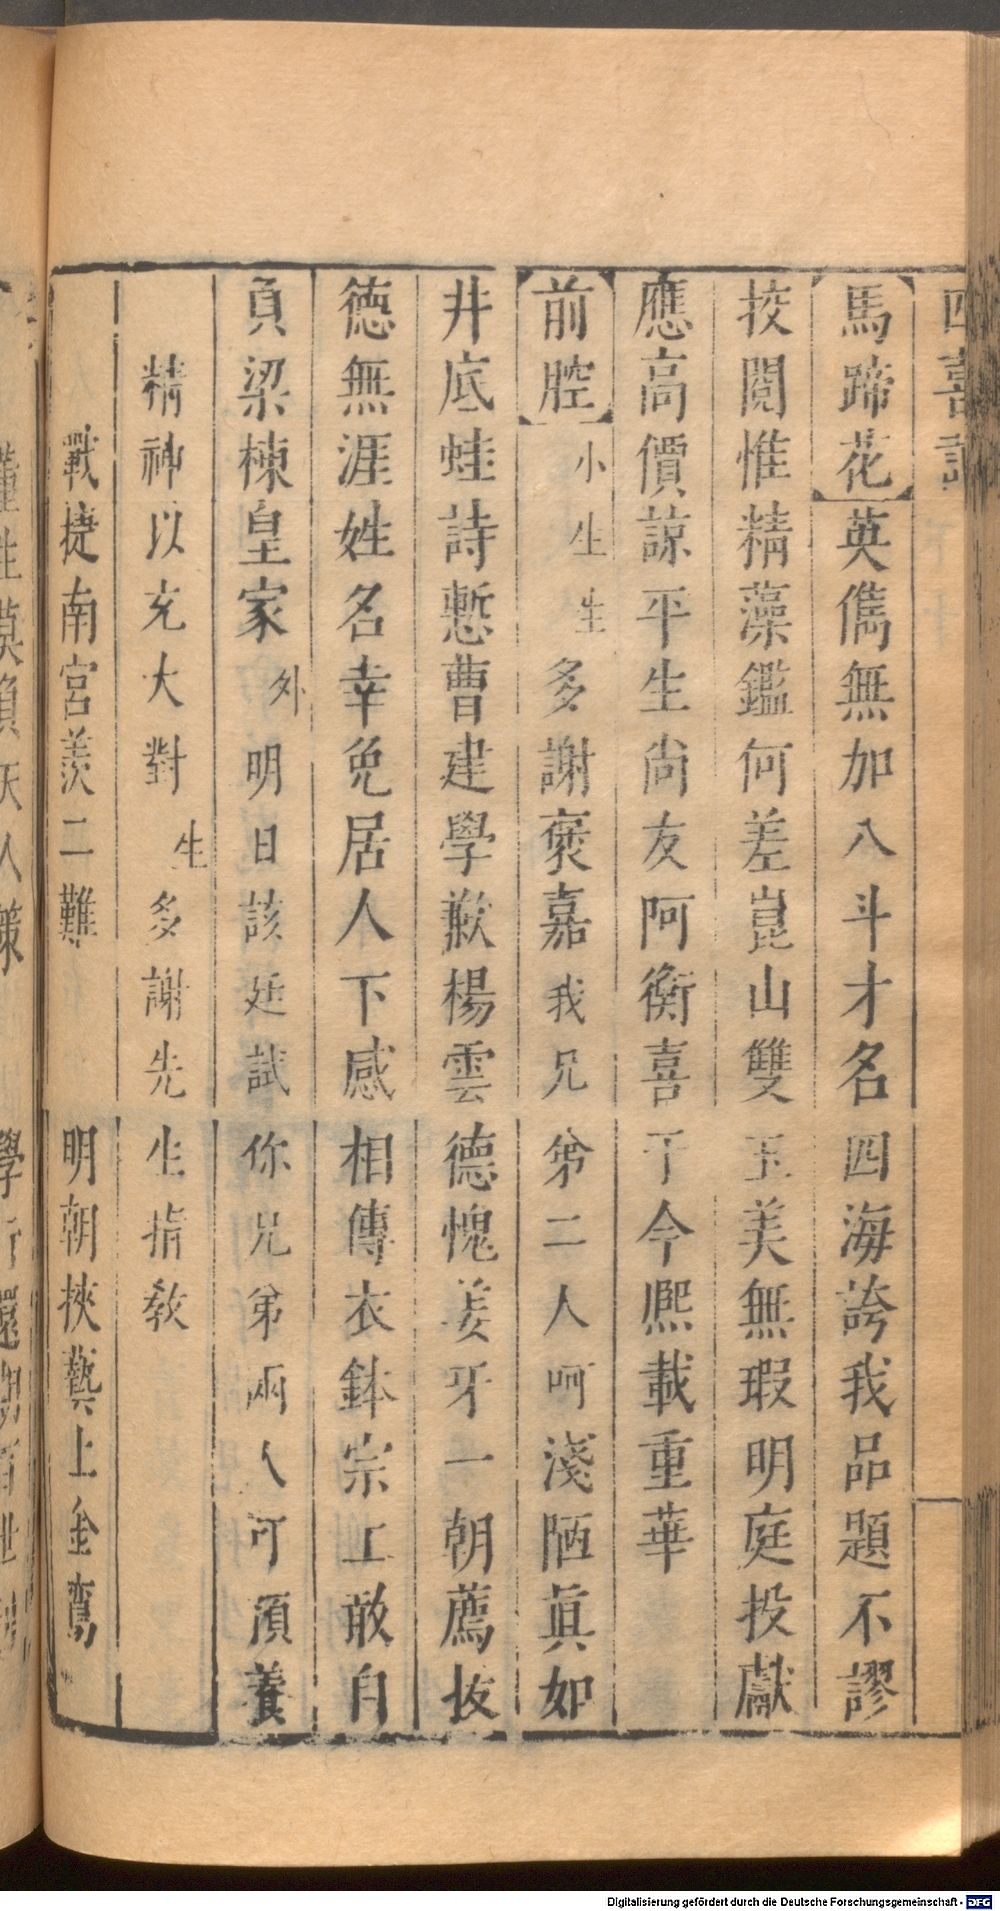 四喜記
馬蹄花英儁無加八斗才名四海誇我品題不謬
挍閱惟精藻鑑何差崑山雙玉美無瑕明庭投獻
應高價諒平生尚友阿衡喜于今熈載重華
前腔小生生多謝褒嘉我兄弟二人呵淺陋眞如
井底蛙詩慙曹建學歉楊雲德愧姜牙一朝薦抜
徳無涯姓名幸免居人下感相傳衣鉢宗工敢自
負梁棟皇家外明日該廷試你兄弟兩人可湏養
精神以充大對生多謝先生指教
戰捷南宮羨二難明朝挾藝上金鸞
Digitalisierung gefördert durch die Deutsche Forschungsgemeinschaft - DFG